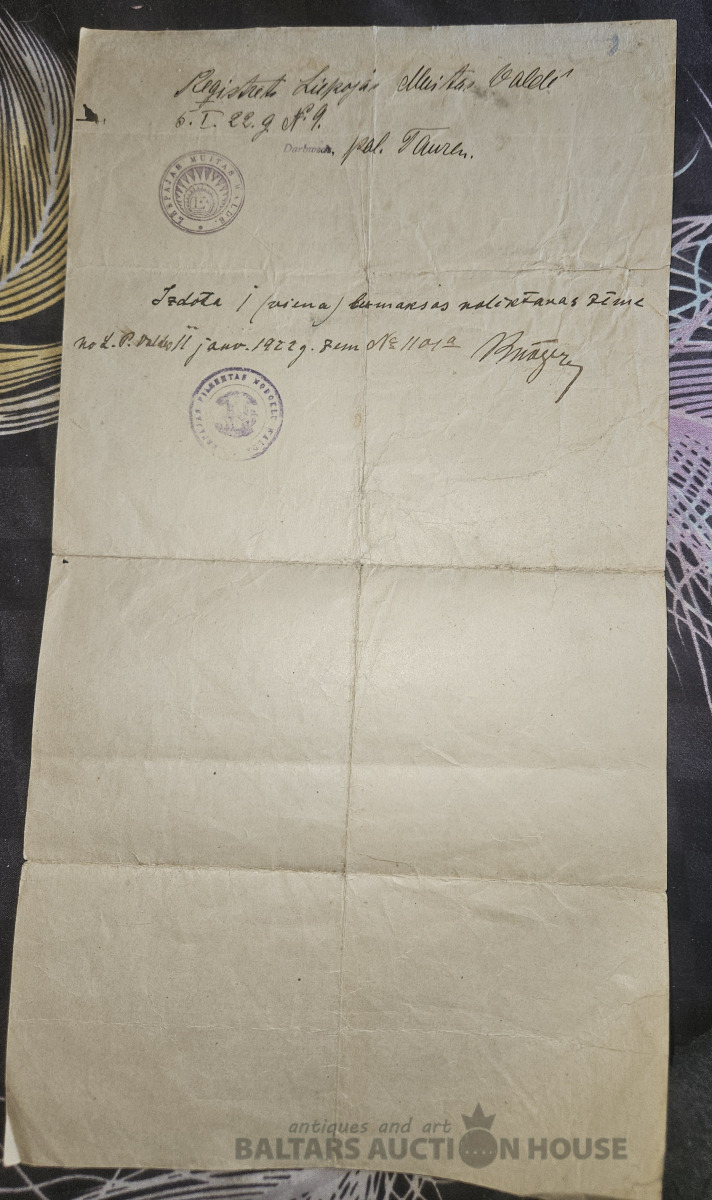 Registrēts Liepojās Muitas Valdē
5. I. 22. g. № 9.
Darbwedis, pal. Tauren.
LEEPAJAS MUITAS WALDE.
Izdota 1 (viena) bezmaksas noliktavas zīme
no L. P. Valdes 11 janv. 1922 g. zem № 1101a
LEEPAJAS PILSEHTAS NODOKLU WALDE
antiques and art
BALTARS AUCTION HOUSE